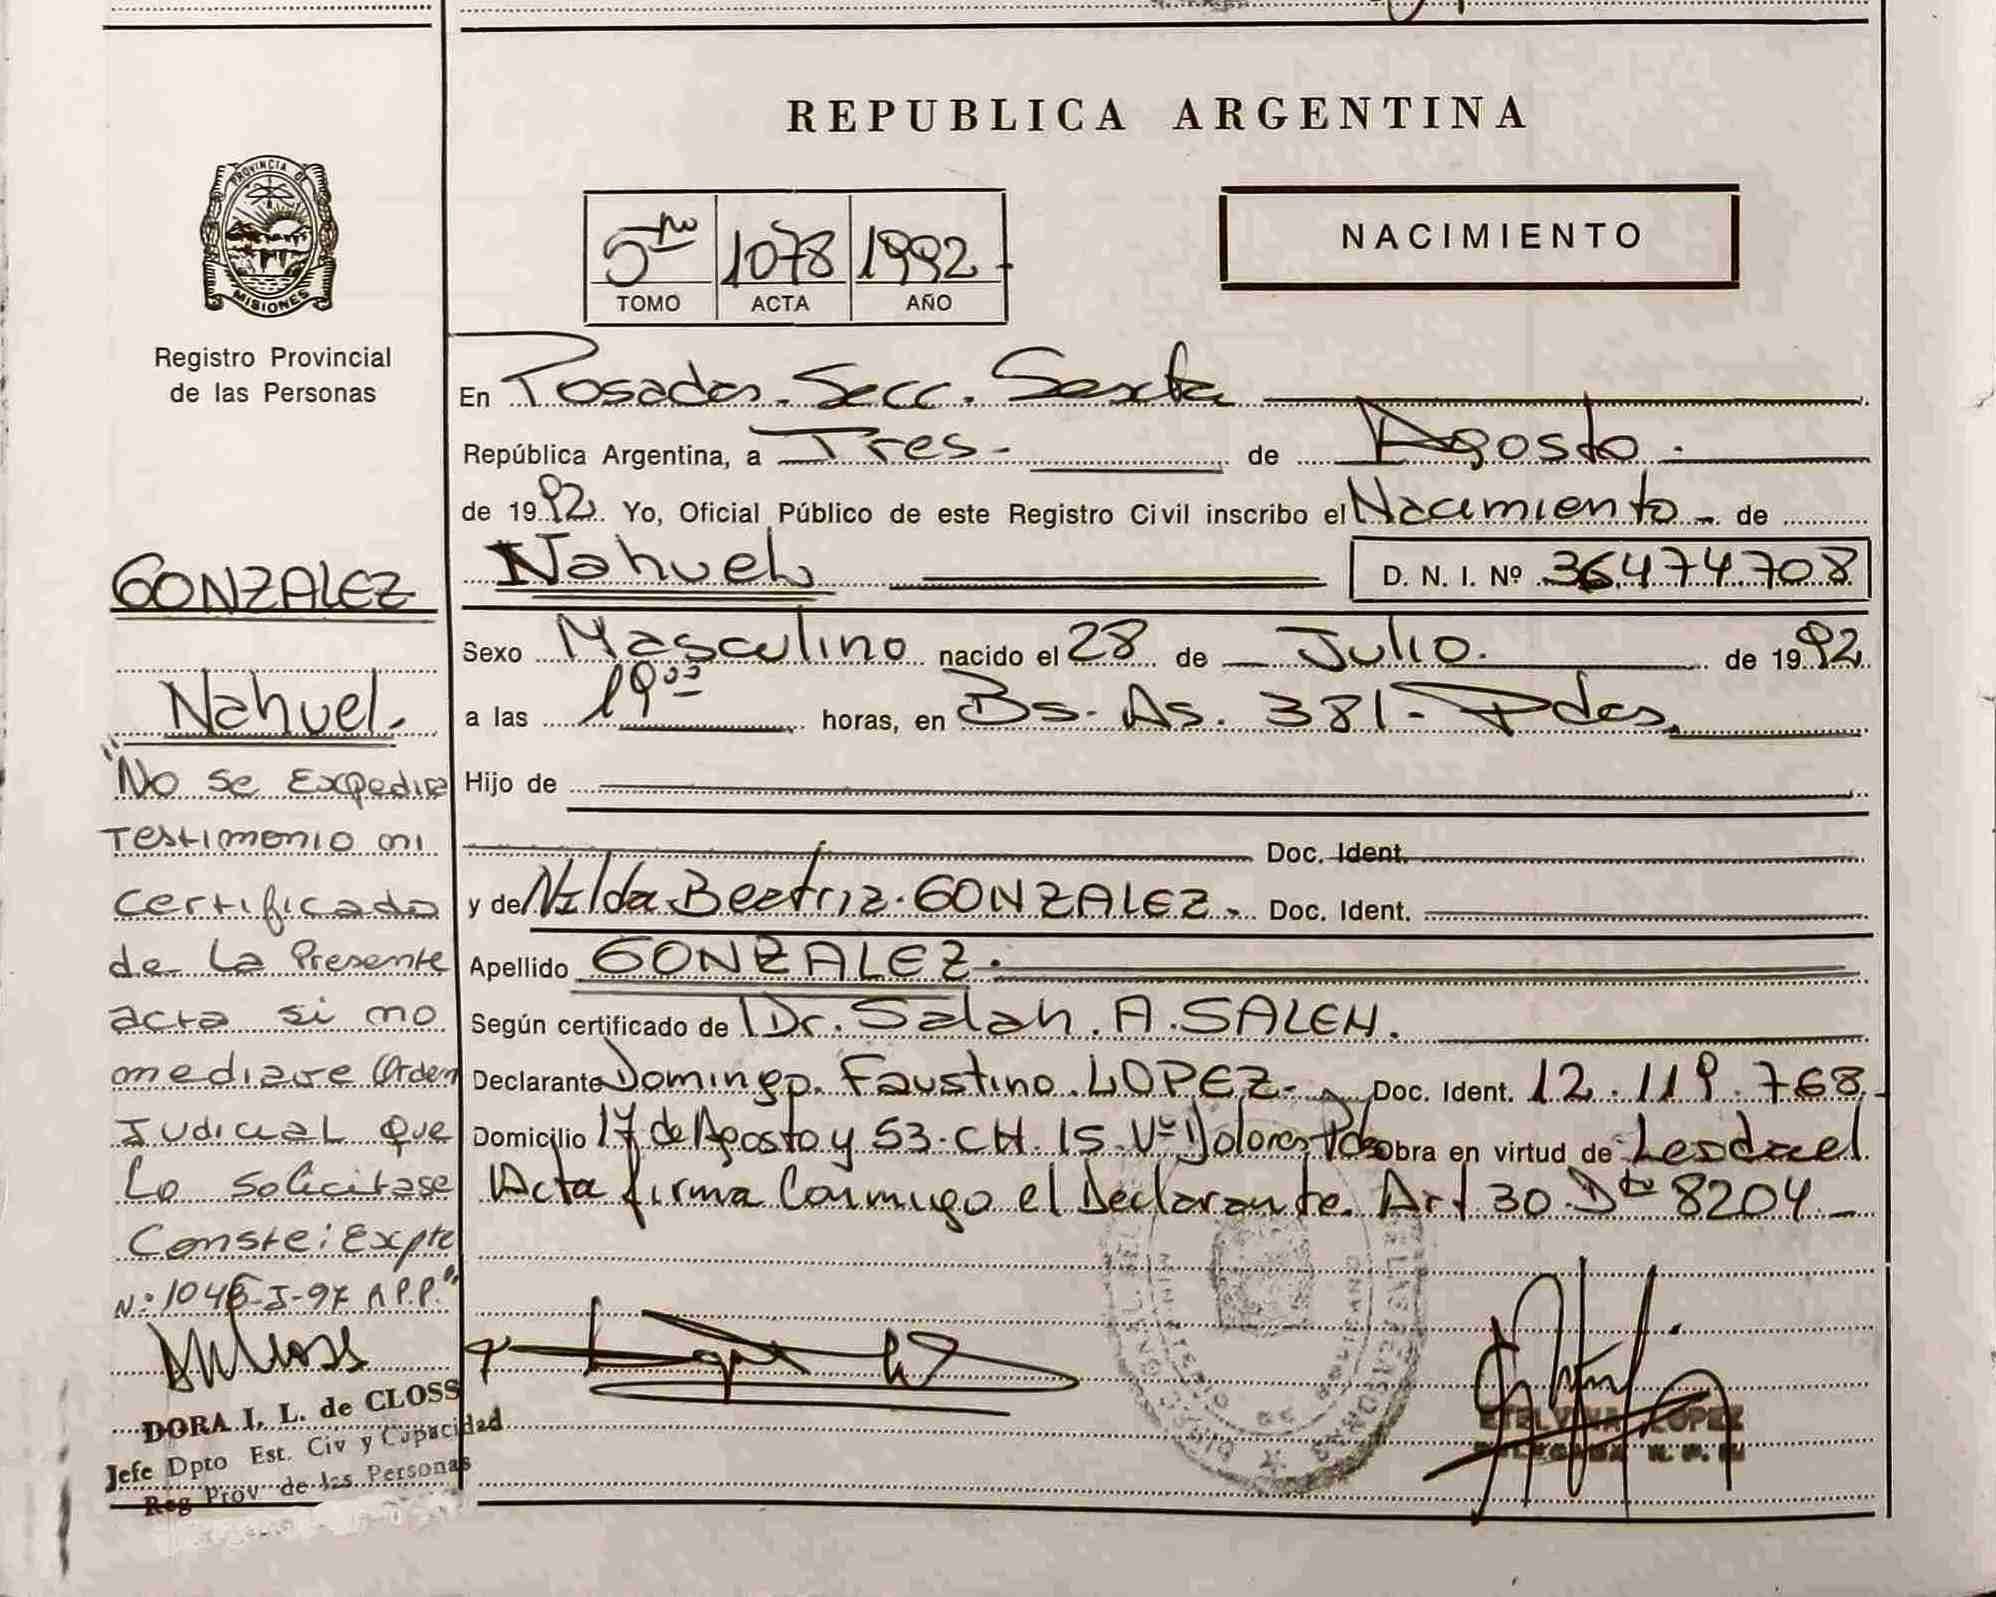 REPUBLICA ARGENTINA
PROVINCIA DE
MISIONES
Registro Provincial
de las Personas
5to 1078 1992
TOMO ACTA AÑO
NACIMIENTO
En Posadas. Secc. Sexta
República Argentina, a Tres- de Agosto.
de 1992. Yo, Oficial Público de este Registro Civil inscribo el Nacimiento de
Nahuel D. N. I. Nº 36.474.708
Sexo Masculino nacido el 28 de Julio. de 1992
a las 19 00 horas, en Bs. As. 381- Pdas.
Hijo de
Doc. Ident.
y de Nilda Beatriz. GONZALEZ. Doc. Ident.
Apellido GONZALEZ.
Según certificado de Dr. Salah. A. SALEH.
Declarante Domingo. Faustino. LOPEZ- Doc. Ident. 12.119.768
Domicilio 17 de Agosto y 53. CH. 15. Vª Dolores, Pdas Obra en virtud de Leodael
Acta firma Conmigo el Declarante. Art 30. Dto 8204
GONZALEZ
Nahuel.
"No se Expedira
Testimonio ni
Certificado
de La Presente
acta si no
mediare Orden
Judicial que
Lo Solicitase
Conste: Expte
N.º 1046-J-97 A P.P."
DORA I. L. de CLOSS
Jefe Dpto Est. Civ y Capacidad
Reg Prov de las Personas
ETELVINA LOPEZ
DELEGADA R. P. P.